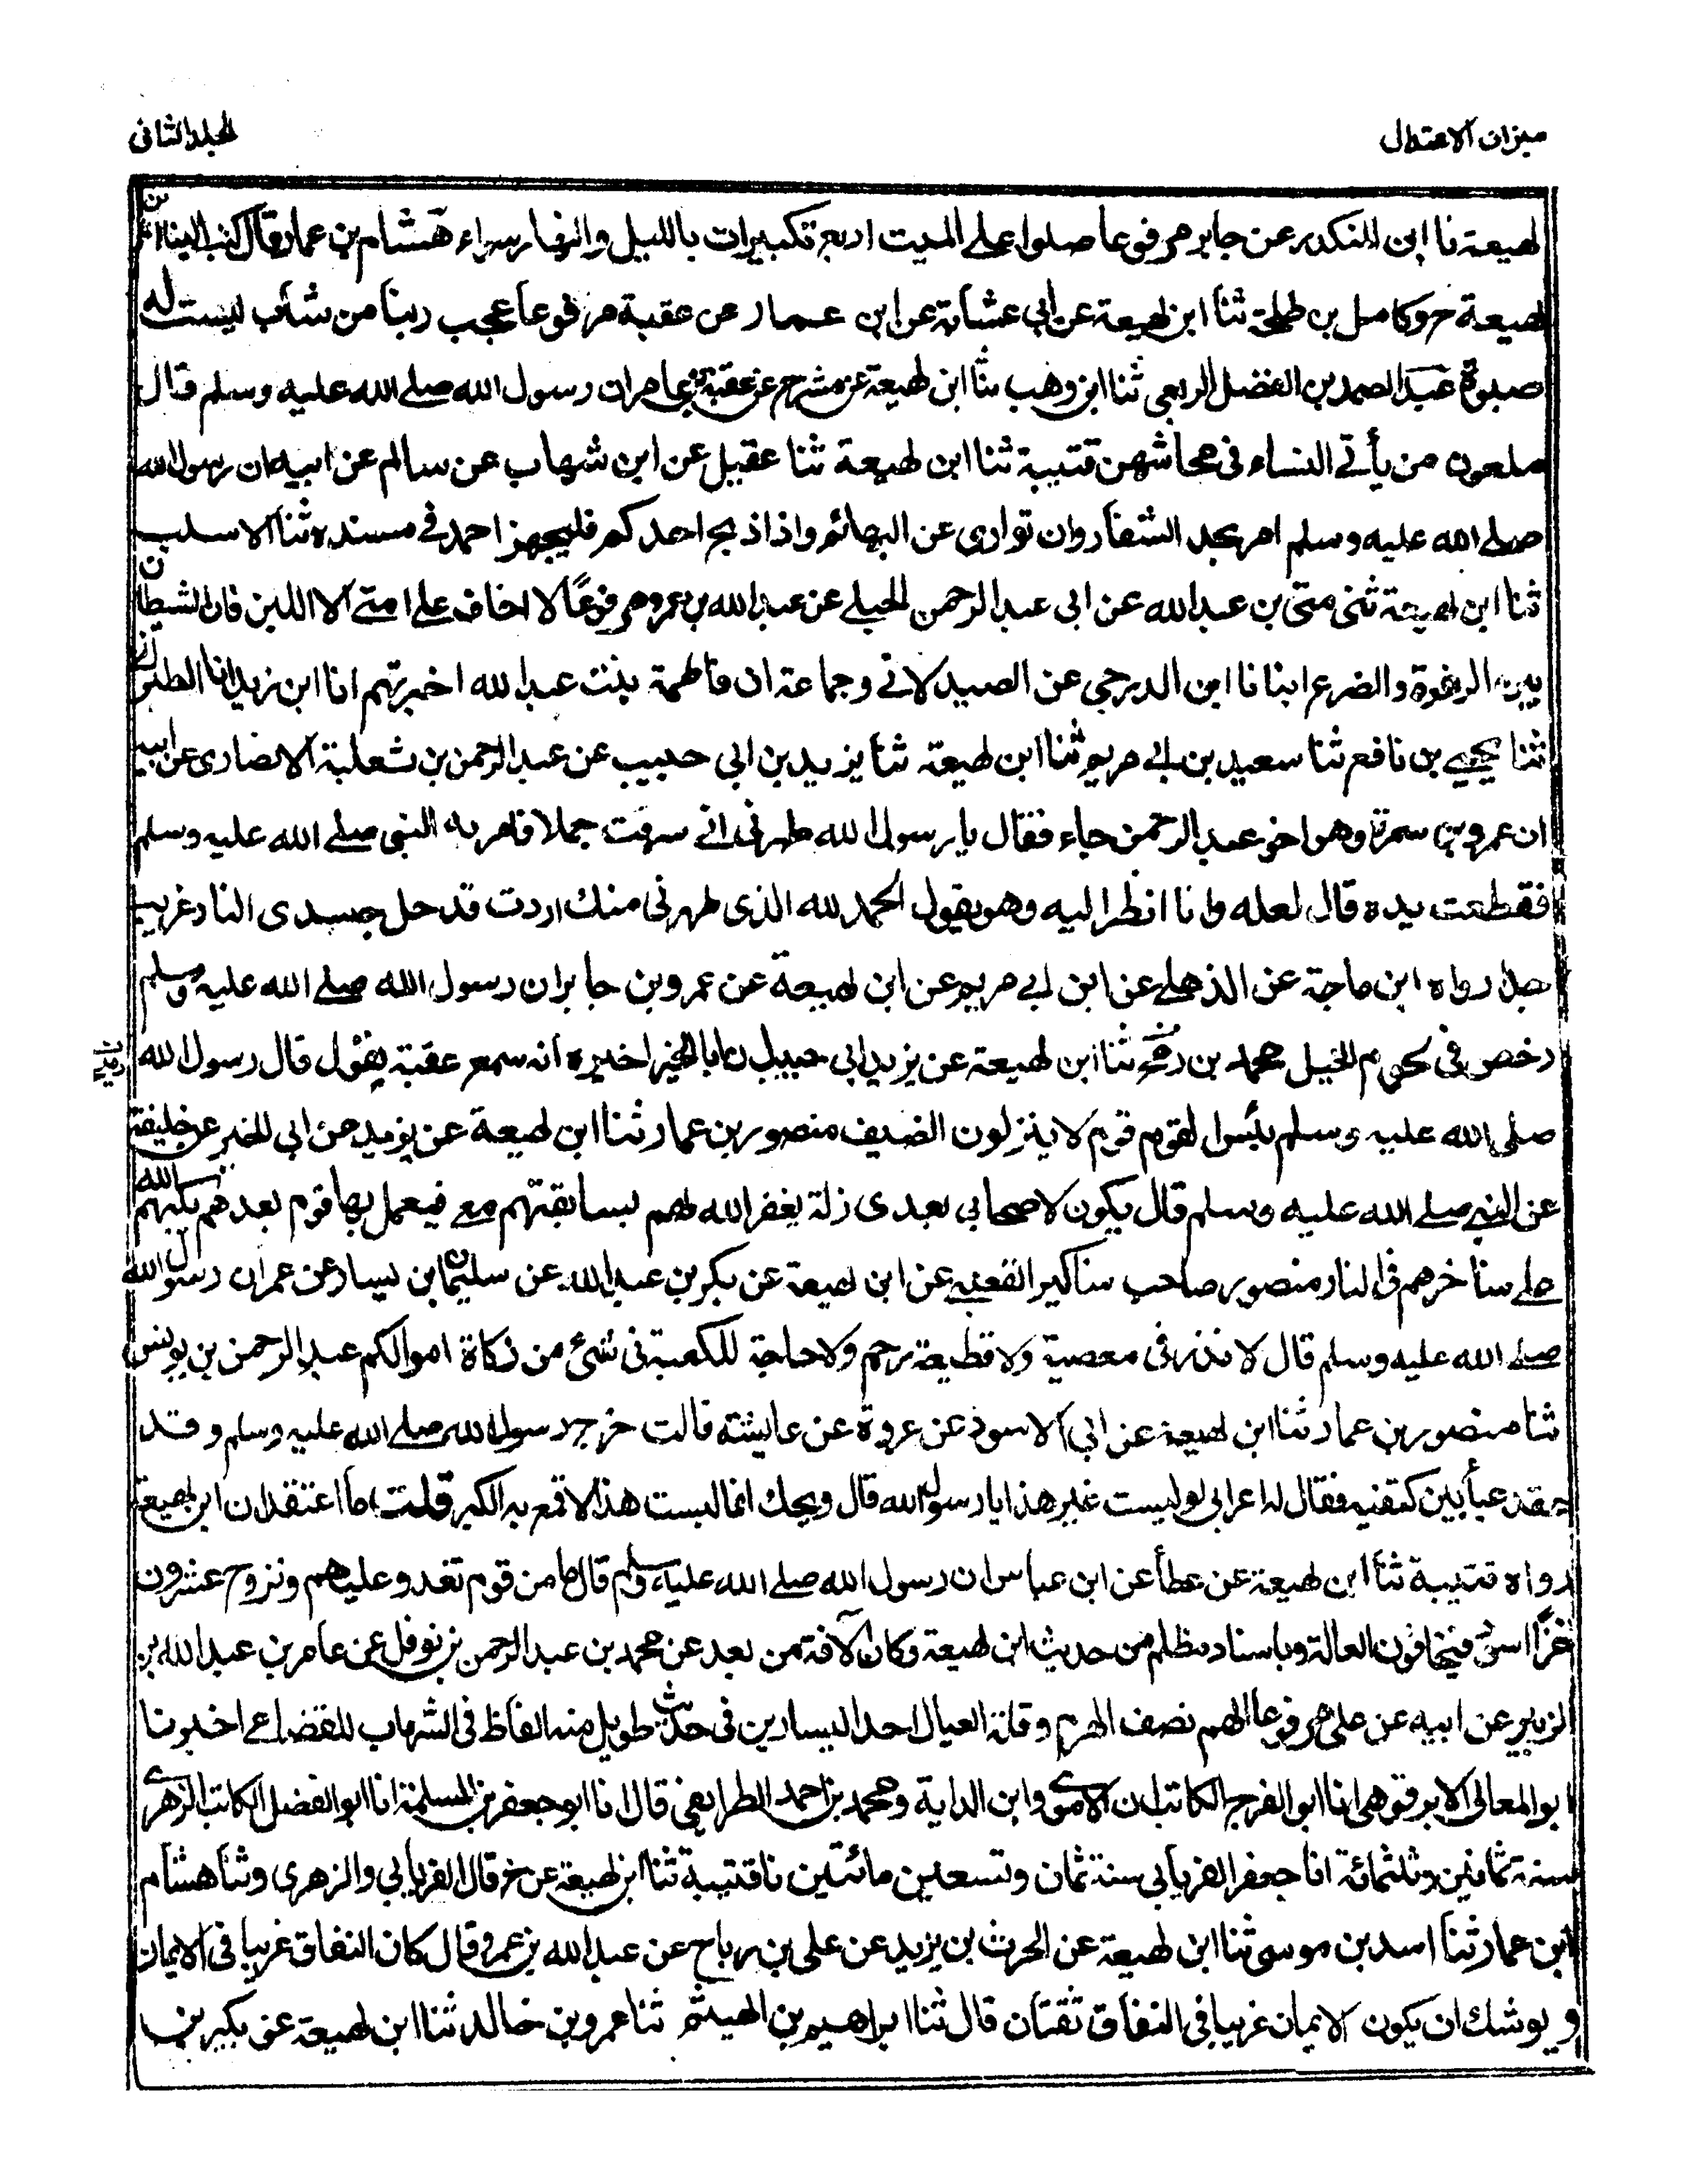 ميزان الاعتدال
المجلد الثانى
لهيعة نا ابن المنكدر عن جابر مرفوعا صلوا على الميت اربع تكبيرات بالليل والنهار سواء هشام بن عمار قال كتب الينا ابن
لهيعة ح وكامل بن طلحة ثنا ابن لهيعة عن ابي عشانة عن ابن عمار عن عقبة مرفوعا عجب ربنا من شاب ليست له
صبوة عبد الصمد بن الفضل الربعي ثنا ابن وهب ثنا ابن لهيعة عن مشرح عن عقبة بن عامر ان رسول الله صلے الله عليه وسلم قال
ملعون من يأتے النساء فى محاشهن قتيبة ثنا ابن لهيعة ثنا عقيل عن ابن شهاب عن سالم عن ابيه ان رسول الله
صلے الله عليه وسلم امر بحد الشفار وان توارى عن البهائم واذا ذبح احدكم فليجهز احمد فے مسنده ثنا الاسلب
ثنا ابن لهيعة ثنى متى بن عبد الله عن ابى عبد الرحمن الحبلے عن عبد الله بن عمرو مرفوعًا لا اخاف علے امتے الا اللبن فان الشيطان
بين الرغوة والضرع انبانا ابن الدرجى عن الصيدلانے وجماعة ان فاطمة بنت عبد الله اخبرتهم انا ابن زيد انا الطبرانى
ثنا يحيے بن نافع ثنا سعيد بن ابے مريم ثنا ابن لهيعة ثنا يزيد بن ابى حبيب عن عبد الرحمن بن ثعلبة الانصارى عن ابيه
ان عمرو بن سمرة وهو اخو عبد الرحمن جاء فقال يا رسول الله طهرنى انے سرقت جملا فامر به النبى صلے الله عليه وسلم
فقطعت يده قال لعله وانا انظر اليه وهو يقول الحمد لله الذى طهرنى منك اردت قد حل جسدى النار غريب
جدا رواه ابن ماجة عن الذهلے عن ابن ابے مريم عن ابن لهيعة عن عمرو بن جابر ان رسول الله صلے الله عليه وسلم
رخص فى لحوم الخيل محمد بن رمح ثنا ابن لهيعة عن يزيد ابى حبيب ان ابا الخير اخبره انه سمع عقبة يقول قال رسول الله
صلى الله عليه وسلم بئس القوم قوم لا ينزلون الضيف منصور بن عمار ثنا ابن لهيعة عن يزيد عن ابى الخير عن خليفة
عن النبے صلے الله عليه وسلم قال يكون لاصحابى بعدى زلة يغفر الله لهم بسابقتهم معے فيعمل بها قوم بعدهم يكبهم الله
على مناخرهم فى النار منصور صاحب مناكير القعنبے عن ابن لهيعة عن بكر بن عبد الله عن سليمان ابن يسار عن عمر ان رسول الله
صلے الله عليه وسلم قال لا نذر فى معصية ولا قطيعة رحم ولا حاجة للكعبة فى شئ من زكاة اموالكم عبد الرحمن بن يونس
ثنا منصور بن عمار ثنا ابن لهيعة عن ابي الاسود عن عروة عن عايشة قالت خرج رسول الله صلے الله عليه وسلم وقد
عقد عبأ بين كتفيه فقال له اعرابى لو لبست غير هذا يا رسول الله قال ويحك انما لبست هذا لاقمع به الكبر قلت ما اعتقد ان ابن لهيعة
رواه قتيبة ثنا ابن لهيعة عن عطأ عن ابن عباس ان رسول الله صلے الله عليه وسلم قال ما من قوم تغدو عليهم وتروح عشرون
عنزًا اسود فيخافون العالة وباسناد مظلم من حديث ابن لهيعة وكان الآفة من بعد عن محمد بن عبد الرحمن بن نوفل عن عامر بن عبد الله بن
الزبير عن ابيه عن على مرفوعا الهم نصف الهرم وقلة العيال احد اليسارين فى حديث طويل منه الفاظ فى الشهاب للقضاعے اخبرنا
ابو المعالى الابرقوهى انا ابو الفرج الكاتب ان الاموى وابن الداية ومحمد بن احمد الطرايفى قال انا ابو جعفر بن المسلمة انا ابو الفضل الكاتب الزهرى
سنة ثمانين وثلثمائة انا جعفر الفريابى سنة ثمان وتسعين مائتين نا قتيبة ثنا ابن لهيعة عن خ قال الفريابى والزهرى وثنا هشام
ابن عمار ثنا اسد بن موسى ثنا ابن لهيعة عن الحرث بن يزيد عن على بن رباح عن عبد الله بن عمرو قال كان النفاق غريبا فى الايمان
و يوشك ان يكون الايمان غريبا فى النفاق ثقتان قال ثنا ابراهيم بن الهيثم ثنا عمرو بن خالد ثنا ابن لهيعة عن بكير بن